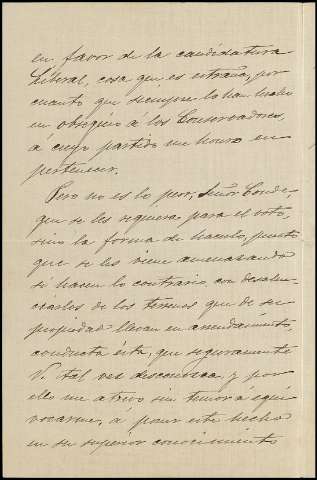 en favor de la candidatura
liberal, cosa que es extraña, por
cuanto que siempre lo han hecho
en obsequio á los Conservadores,
á cuyo partido me honro en
pertenecer.
Pero no es lo peor, Señor Conde,
que se les requiera para el voto,
sino la forma de hacerlo, puesto
que se les viene amenazando
si hacen lo contrario, con desahu-
ciarlos de los terrenos que de su
propiedad llevan en arrendamiento,
conducta ésta, que seguramente
V. tal vez desconozca y por
ello me atrevo sin temor á equi-
vocarme, á poner este hecho
en su superior conocimiento